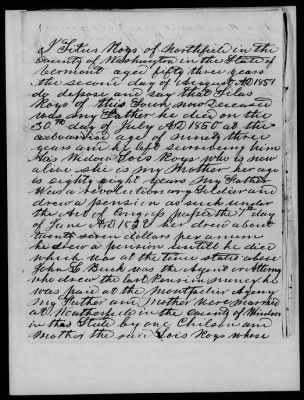 I Titus Roys of Northfield in the
County of Washington in the State of
Vermont aged fifty three years
the second day of August AD 1851
do depose and say that Silas
Roys of this Town now Deceased
was my Father he died on the
30th day of July AD 1850 at the
advanced age of ninety three
years and he left surviving him
his widow Lois Roys who is now
alive she is my Mother her age
is eighty eight years my Father
was a revolutionary Soldier and
drew a pension as such under
the Act of Congress passed the 7th day
of June AD 1832 he drew about
twenty seven dollars per annum
he drew a pension untill he died
which was at the time stated above
John L Buck was the Agent or Attorney
who drew the last Pension money he
was paid at the Montpelier Agency
my Father and Mother were married
at Weathersfield in the County of Windsor
in this State by one Chilson and
Mother the said Lois Roys whose